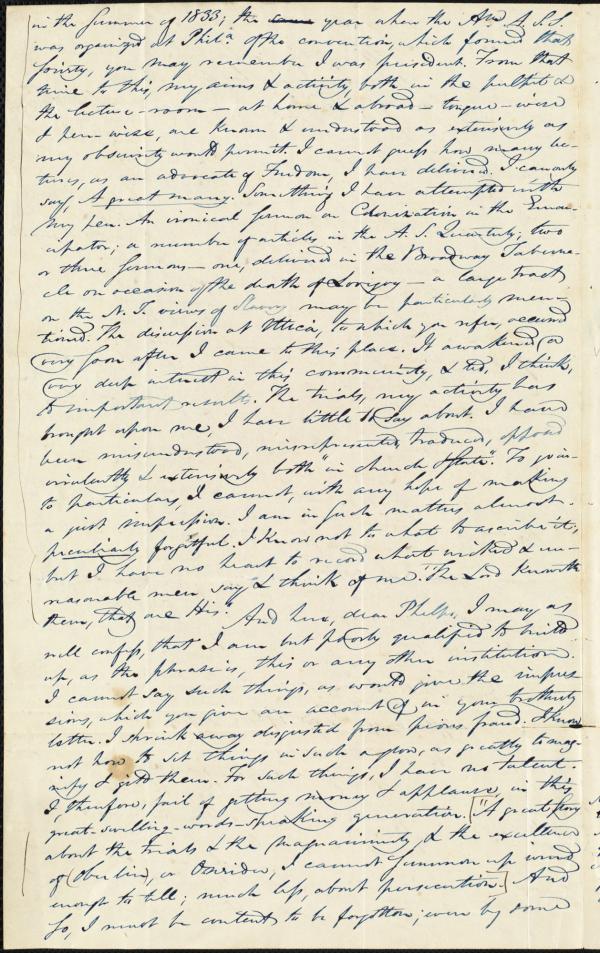 in the Summer of 1833; the year when the Am. A. S. S.
was organized at Phila. Of the convention, which formed that
Society, you may remember I was president. From that
time to this, my aims & activity, both in the pulpit &
the lecture-room — at home & abroad — tongue-wise
& pen-wise, are known & understood as extensively as
my obscurity would permit. I cannot guess how many lec-
tures, as an advocate of Freedom, I have delivered. I can only
say, A great many. Something I have attempted with
my pen. An ironical Sermon on Colonization in the Eman-
cipator; a number of articles in the A. S. Quarterly; two
or three Sermons — one, delivered in the Broadway Taberna-
cle on occasion of the death of Lovejoy — a large tract
on the N. T. views of Slavery may be particularly men-
tioned. The discussion at Utica, to which you refer, occurred
very soon after I came to this place. It awakened a
very deep interest in this community, & led, I think,
to important results. The trials, my activity has
brought upon me, I have little to say about. I have
been misunderstood, misrepresented, traduced, opposed
virulently & extensively both "in church & State". To go in-
to particulars, I cannot, with any hope of making
a just impression. I am in such matters almost
peculiarly forgetful. I know not to what to ascribe it;
but I have no heart to record what wicked & un-
reasonable men say & think of me. "The Lord knoweth
them, that are His." And here, dear Phelps, I may as
well confess, that I am but poorly qualified to build
up, as the phrase is, this or any other institution.
I cannot say such things, as would give the impres-
sions, which you give an account of in your brotherly
letter. I shrink away disgusted from pious fraud. I know
not how to set things in such a glow, as greatly to mag-
nify & gild them. For such things, I have no talent.
I, therefore, fail of getting money & applause, in this
great-swelling-words-speaking generation. ["A great story
about the trials & the magnanimity & the excellence
of Oberlin, or Oneida, I cannot summon up words
enough to tell; much less, about persecution."] And
so, I must be content to be forgotten; even by some